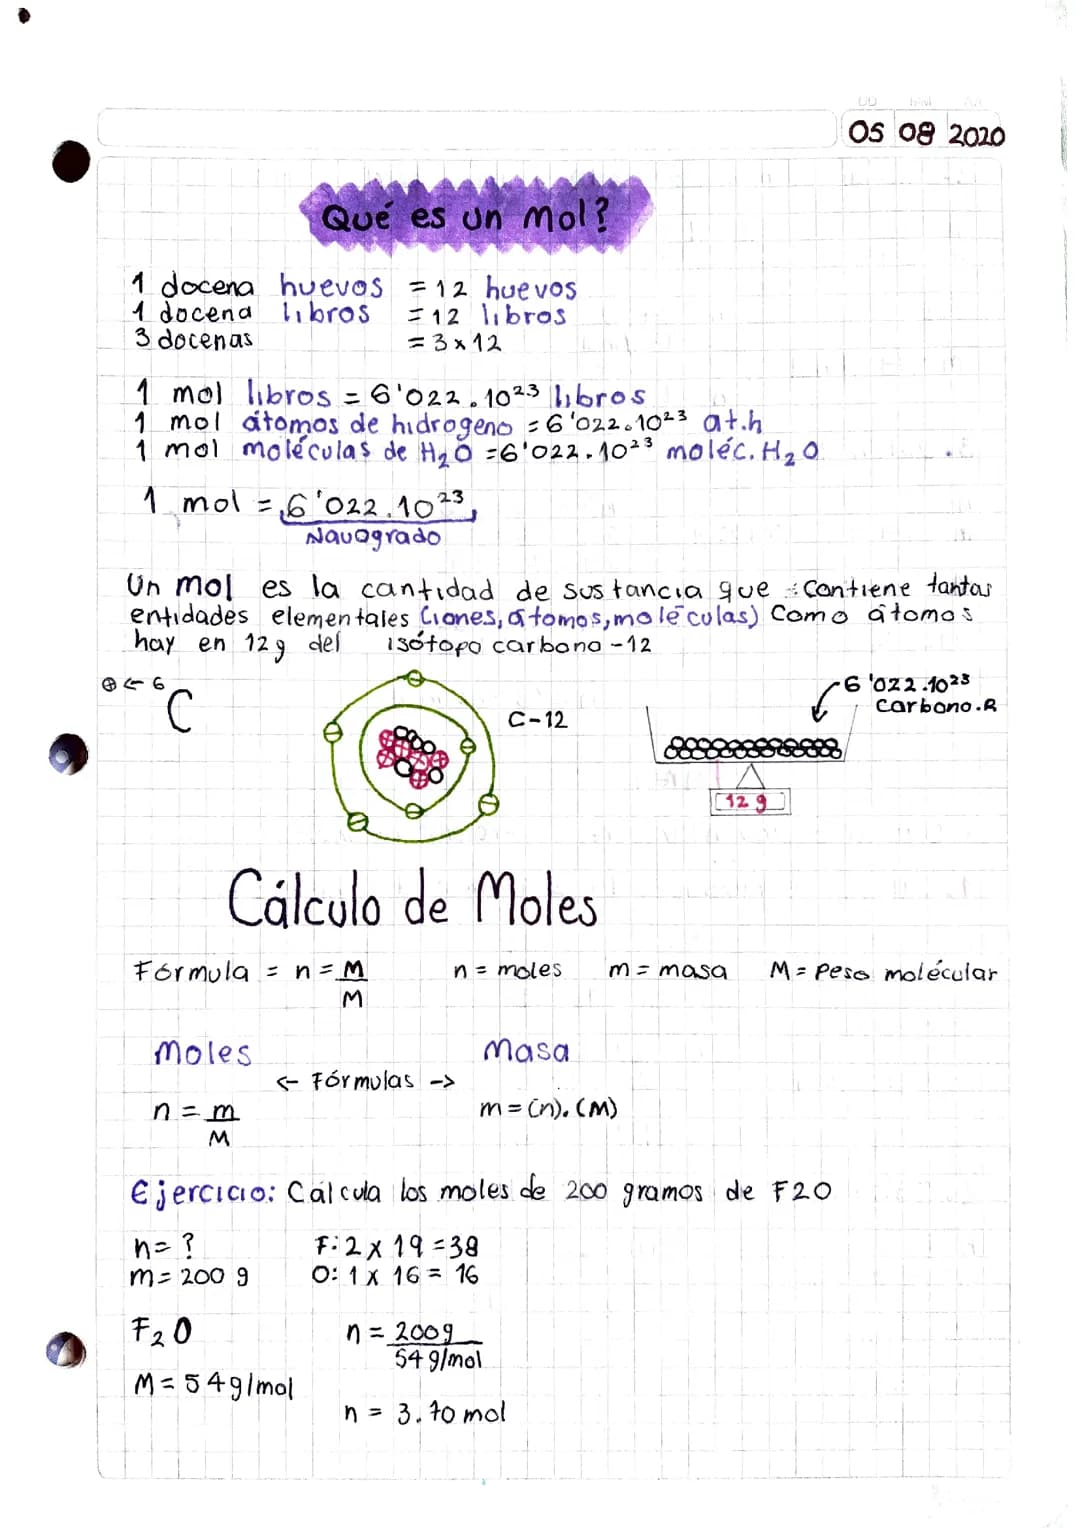 05 08 2020
Qué es un mol?
1 docena huevos = 12 huevos
1 docena libros = 12 libros
3 docenas = 3 x 12
1 mol libros = 6'022.10²³ libros
1 mol átomos de hidrogeno = 6'022.10²³ at.h
1 mol moléculas de H₂O = 6'022.10²³ moléc. H₂O
1 mol = 6'022.10²³
Navogrado
Un mol es la cantidad de sustancia que contiene tantas
entidades elementales (iones, átomos, moléculas) Como átomos
hay en 12g del isótopo carbono-12
⊕ ← 6 C
C-12
6'022.10²³
Carbono.R
12 g
Cálculo de Moles
Fórmula = n = M/M n = moles m = masa M = Peso molécular
Moles Masa
← Fórmulas →
n = m/M m = (n).(M)
Ejercicio: Calcula los moles de 200 gramos de F2O
n = ? F: 2 x 19 = 38
m = 200 g O: 1 x 16 = 16
F₂O n = 200g/54 g/mol
M = 54g/mol
n = 3.70 mol